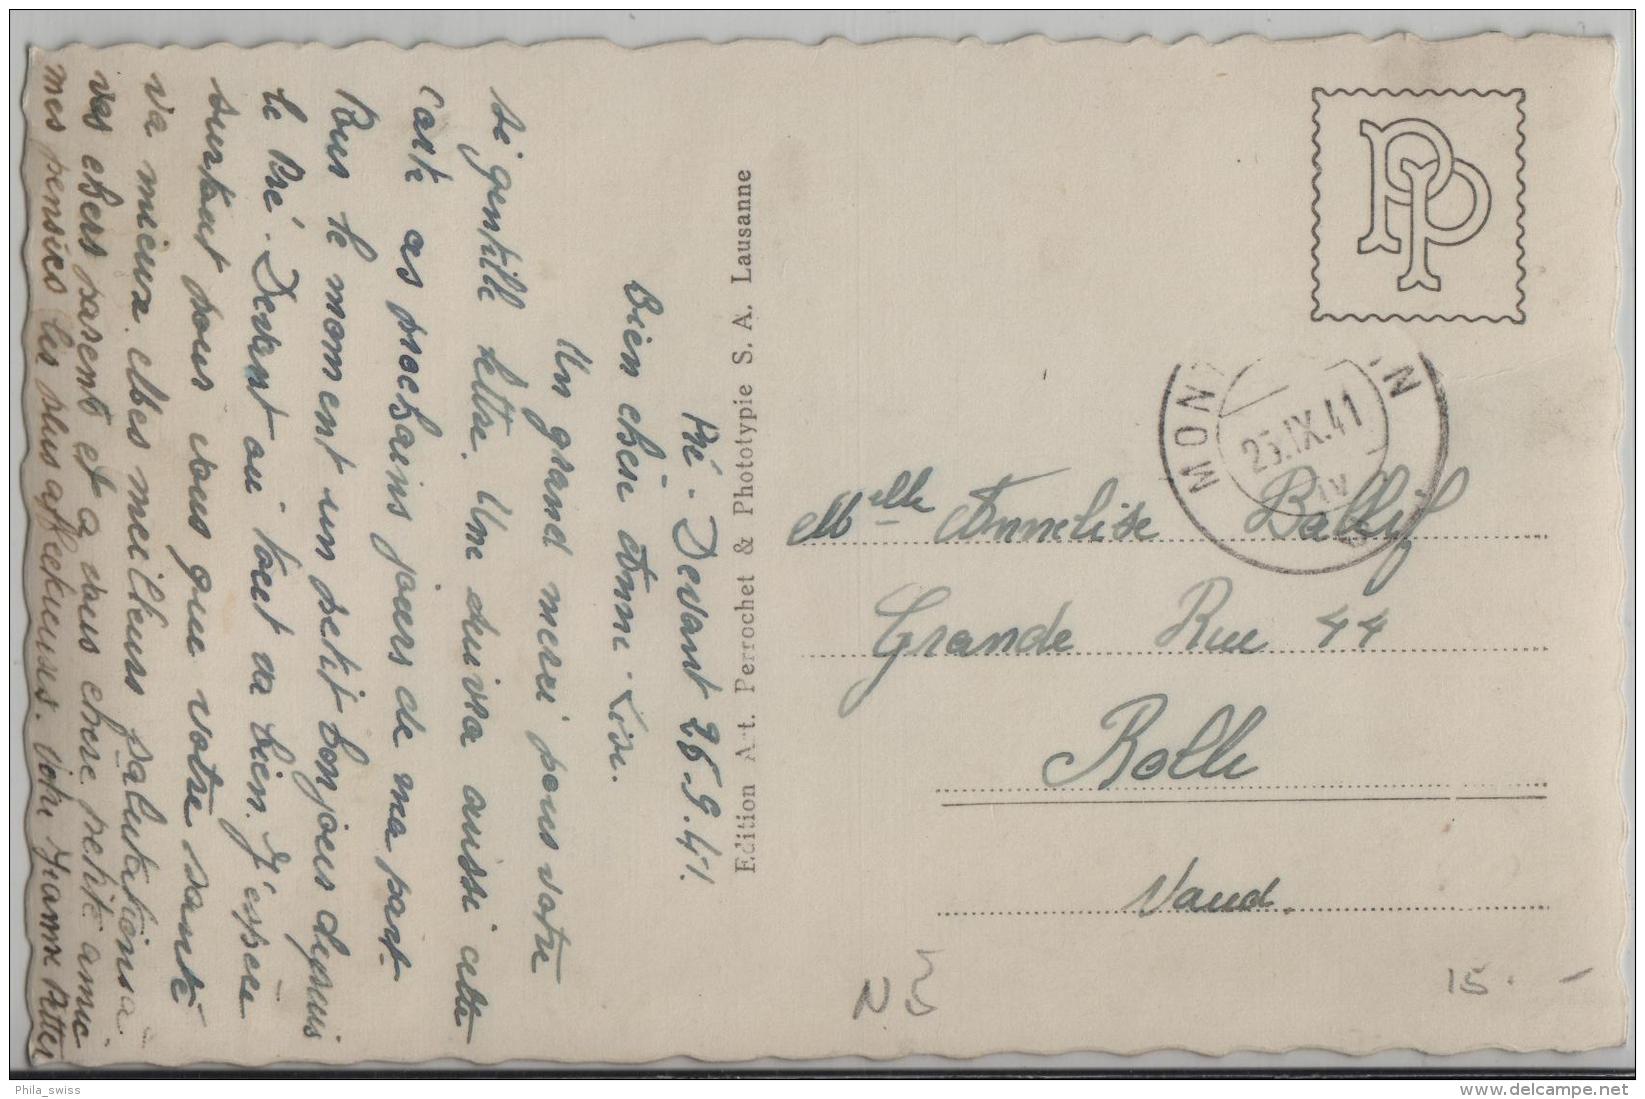 Pré-Devant 26.9.41.
Bien chère Anne-Lise.
Un grand merci pour votre
si gentille lettre. Une suivra aussi cette
carte ces prochains jours de ma part.
Pour le moment un petit bonjour depuis
le Pré-Devant où tout va bien. J'espère
surtout pour vous que votre santé
va mieux. Mes meilleurs salutations à
vos chers parents et à vous chère petite amie
mes pensées les plus affectueuses. Votre
Edition Art. Perrochet & Phototypie S. A. Lausanne
PP
MON
25.IX.41
IV
N
Melle Annelise Ballif
Grande Rue 44
Rolle
Vaud.
N
15.-
Phila_swiss
www.delcampe.net